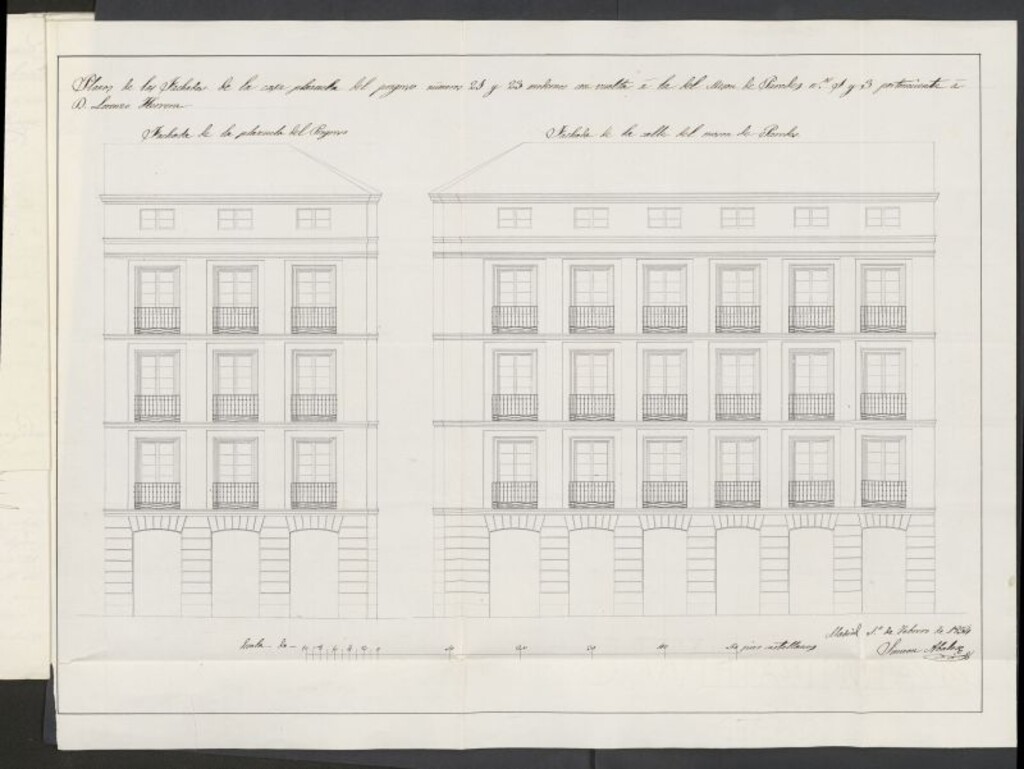 Plano de las Fachadas de la casa plazuela del progreso números 21 y 23 modernos con vuelta á la del Meson de Paredes nos. 1 y 3 perteneciente á
D. Lorenzo Herrera
Fachada de la plazuela del Progreso
Fachada de la calle del meson de Paredes
Escala de
10 20 30 40 50 pies castellanos
Madrid 1º de Febrero de